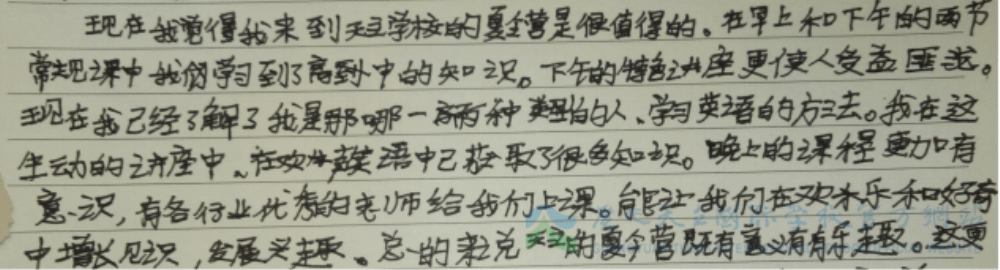 现在我觉得我来到天立学校的夏令营是很值得的。在早上和下午的两节
常规课中我们学习到了高到中的知识。下午的特色讲座更使人受益匪浅。
现在我已经了解了我是那哪一高两种类的人、学习英语的方法。我在这
生动的讲座中、在欢声笑语中已获取了很多知识。晚上的课程更加有
意识，有各行业优秀的老师给我们上课。能让我们在欢乐和好奇
中增长见识，发展兴趣。总的来说天立的夏令营既有意义有有乐趣。这更